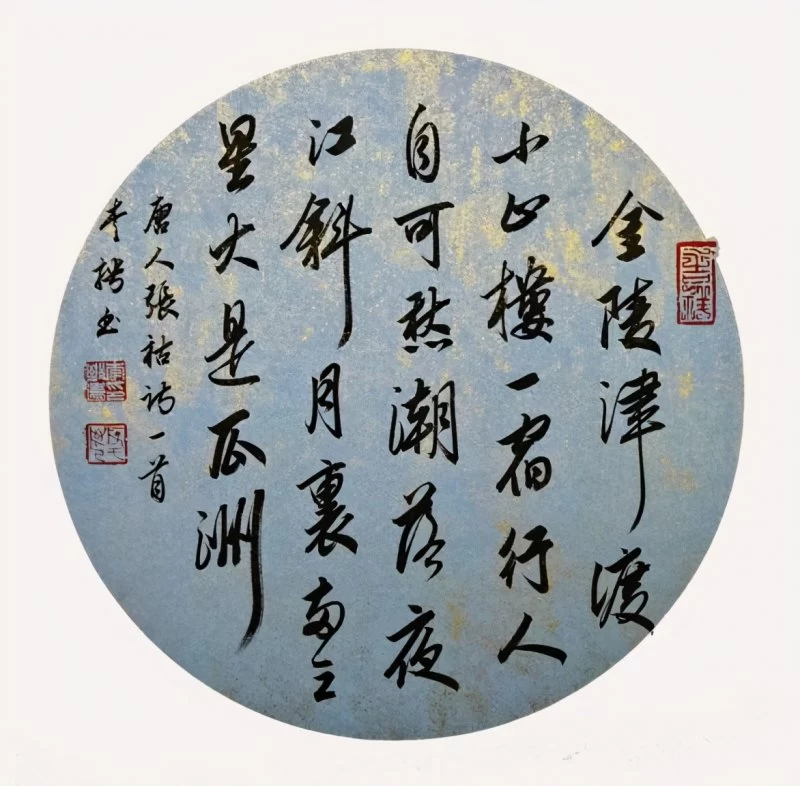 金陵津渡
小山樓一宿行人
自可愁潮落夜
江斜月裏兩三
星火是瓜洲
唐人張祜詩一首
李 书